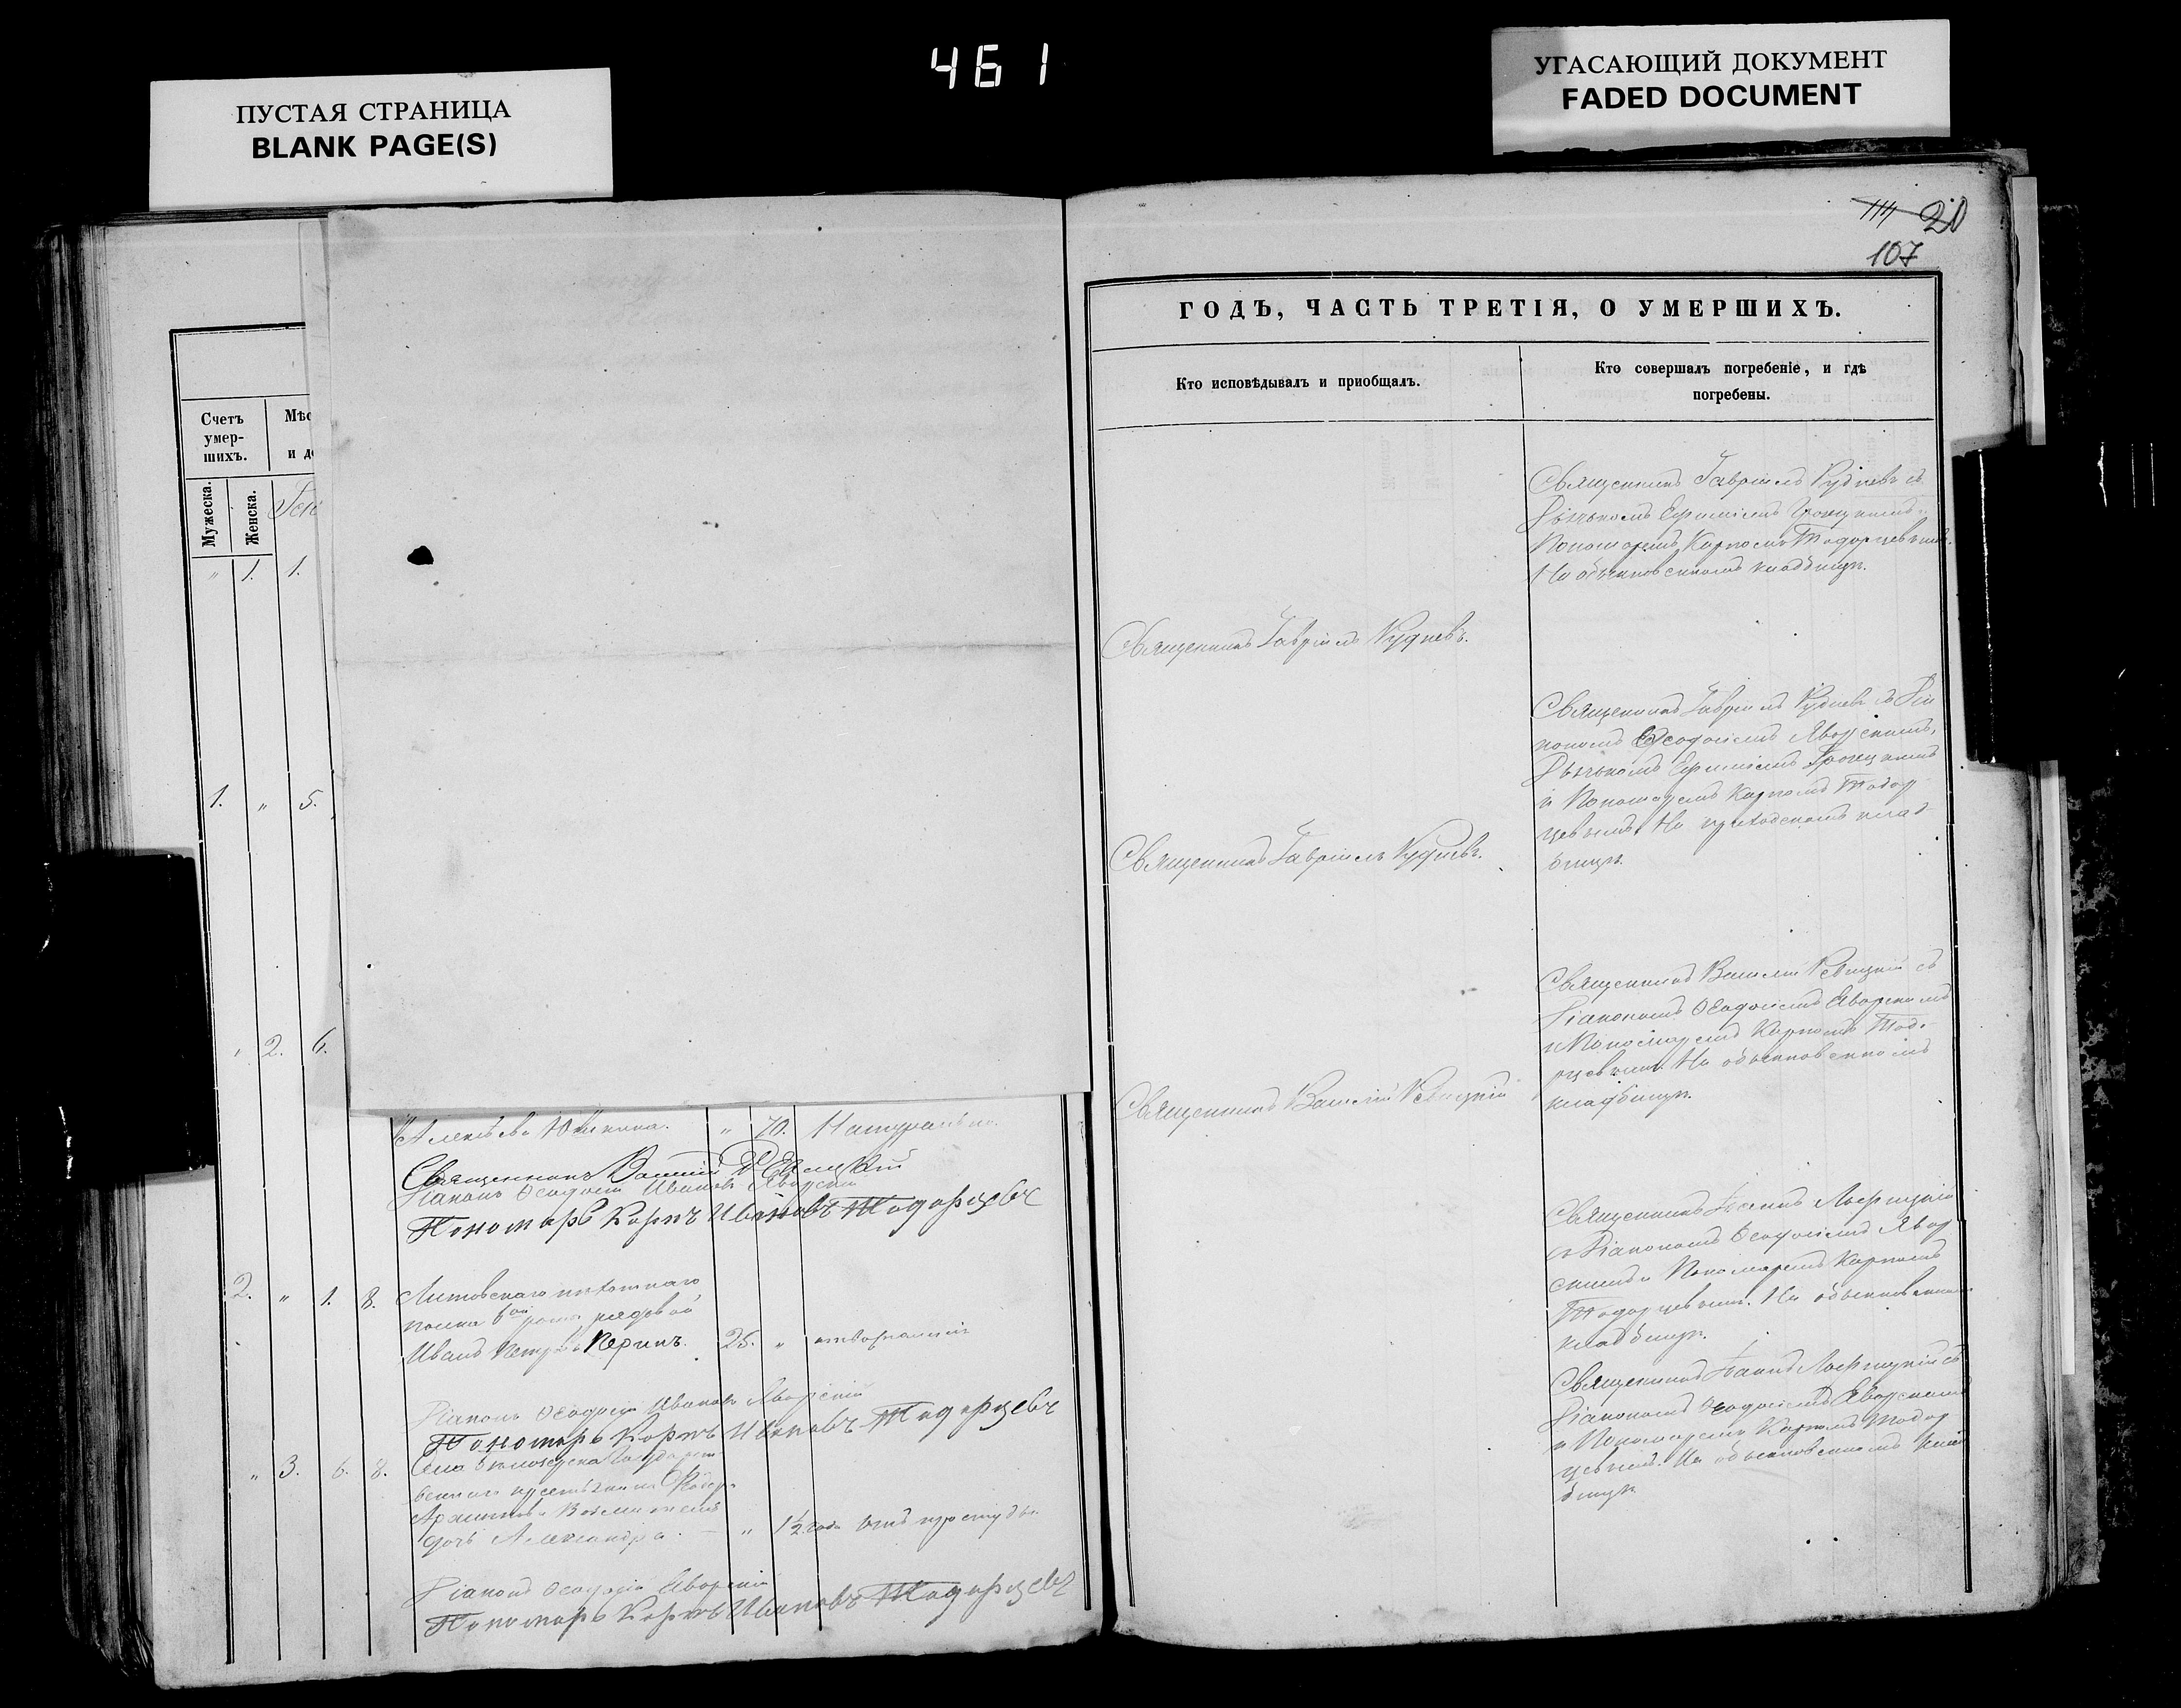 461
ПУСТАЯ СТРАНИЦА
BLANK PAGE(S)
УГАСАЮЩИЙ ДОКУМЕНТ
FADED DOCUMENT
Счетъ
умер-
шихъ.
Мѣс
и д
Мужеска.
Женска.
Ген
" 1. 1.
1. " 5.
" 2. 6.
Юшкина. " 70. Натурально.
Священникъ Василій
Діаконъ Ѳеодосій Ивановъ Яворскій
Пономарь Карпъ Ивановъ Тодорцевъ
2. " 1. 8. Литовскаго пѣхотнаго
полка 6ой роты рядовой
Иванъ Петровъ 25. "
Діаконъ Ѳеодосій Ивановъ Яворскій
Пономарь Карпъ Ивановъ Тодорцевъ
" 3. 6. 8. Села
дочь Александра. " 1½ года отъ простуды.
Діаконъ Ѳеодосій Яворскій
Пономарь Карпъ Ивановъ Тодорцевъ
20
107
ГОДЪ, ЧАСТЬ ТРЕТІЯ, О УМЕРШИХЪ.
Кто исповѣдывалъ и приобщалъ.
Кто совершалъ погребеніе, и гдѣ
погребены.
Священникъ Гавріилъ Рудневъ съ
Дьячкомъ Ефиміемъ Троицкимъ и
Пономаремъ Карпомъ Тодорцевымъ.
На обыкновенномъ кладбищѣ.
Священникъ Гавріилъ Рудневъ.
Священникъ Гавріилъ Рудневъ съ Діа
кономъ Ѳеодосіемъ Яворскимъ,
Дьячкомъ Ефиміемъ Троицкимъ
и Пономаремъ Карпомъ Тодор
цевымъ. На приходскомъ клад
бищѣ.
Священникъ Гавріилъ Рудневъ.
Священникъ Василій съ
Діакономъ Ѳеодосіемъ Яворскимъ
и Пономаремъ Карпомъ Тодо
рцевымъ. На обыкновенномъ
кладбищѣ.
Священникъ Василій
Священникъ Іоаннъ
съ Діакономъ Ѳеодосіемъ Явор
скимъ и Пономаремъ Карпомъ
Тодорцевымъ. На обыкновенномъ
кладбищѣ.
Священникъ Іоаннъ съ
Діакономъ Ѳеодосіемъ Яворскимъ
и Пономаремъ Карпомъ Тодор
цевымъ. На обыкновенномъ клад
бищѣ.